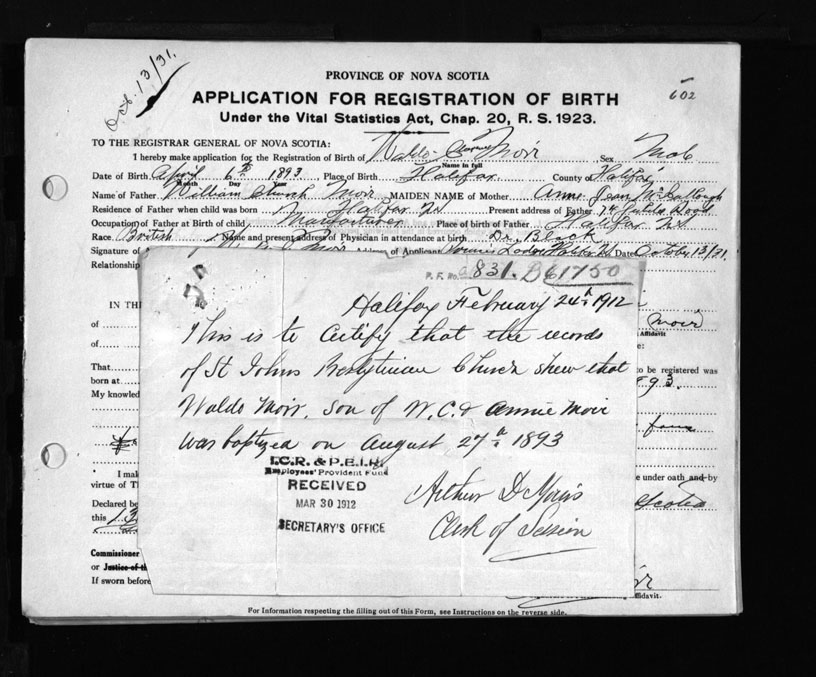 Oct. 13/31.
PROVINCE OF NOVA SCOTIA
602
APPLICATION FOR REGISTRATION OF BIRTH
Under the Vital Statistics Act, Chap. 20, R. S. 1923.
TO THE REGISTRAR GENERAL OF NOVA SCOTIA:
I hereby make application for the Registration of Birth of Waldo Moir Sex Male
Name in full
Date of Birth April 6th 1893 Place of Birth Halifax County of Halifax
Month Day Year
Name of Father William Church Moir MAIDEN NAME of Mother Anne Jean
Residence of Father when child was born Halifax NS Present address of Father
Occupation of Father at Birth of child Manufacturer Place of birth of Father Halifax NS
Race British Name and present address of Physician in attendance at birth Dr. Black
Signature of Address of Applicant Date October 13/31.
Relationship
P. F. No. 831. B61750
IN TH
Halifax February 24th 1912
of Moir
This is to Certify that the records
Affidavit
of
of St Johns Presbyterian Church shew that
That to be registered was
born at 893.
Waldo Moir, son of W.C. & Annie Moir
My knowled
was baptized on August 27th 1893
I.C.R. & P.E.I.R.
Employees' Provident Fund
I mak
re under oath and by
RECEIVED
virtue of T Scotia
Arthur D Morris
MAR 30 1912
Declared be
this 13
SECRETARY'S OFFICE
Clerk of Session
Commissioner
or Justice of th
If sworn before
ffidavit.
For Information respecting the filling out of this Form, see Instructions on the reverse side.